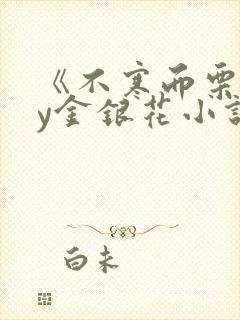 《不寒而栗
y金银花小说
白未